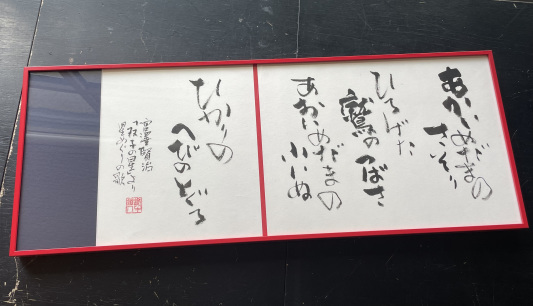 あかいめだまの
さそり
ひろげた
鷲のつばさ
あおいめだまの
小いぬ
ひかりの
へびのとぐろ
宮澤賢治
双子の星より
星めぐりの歌